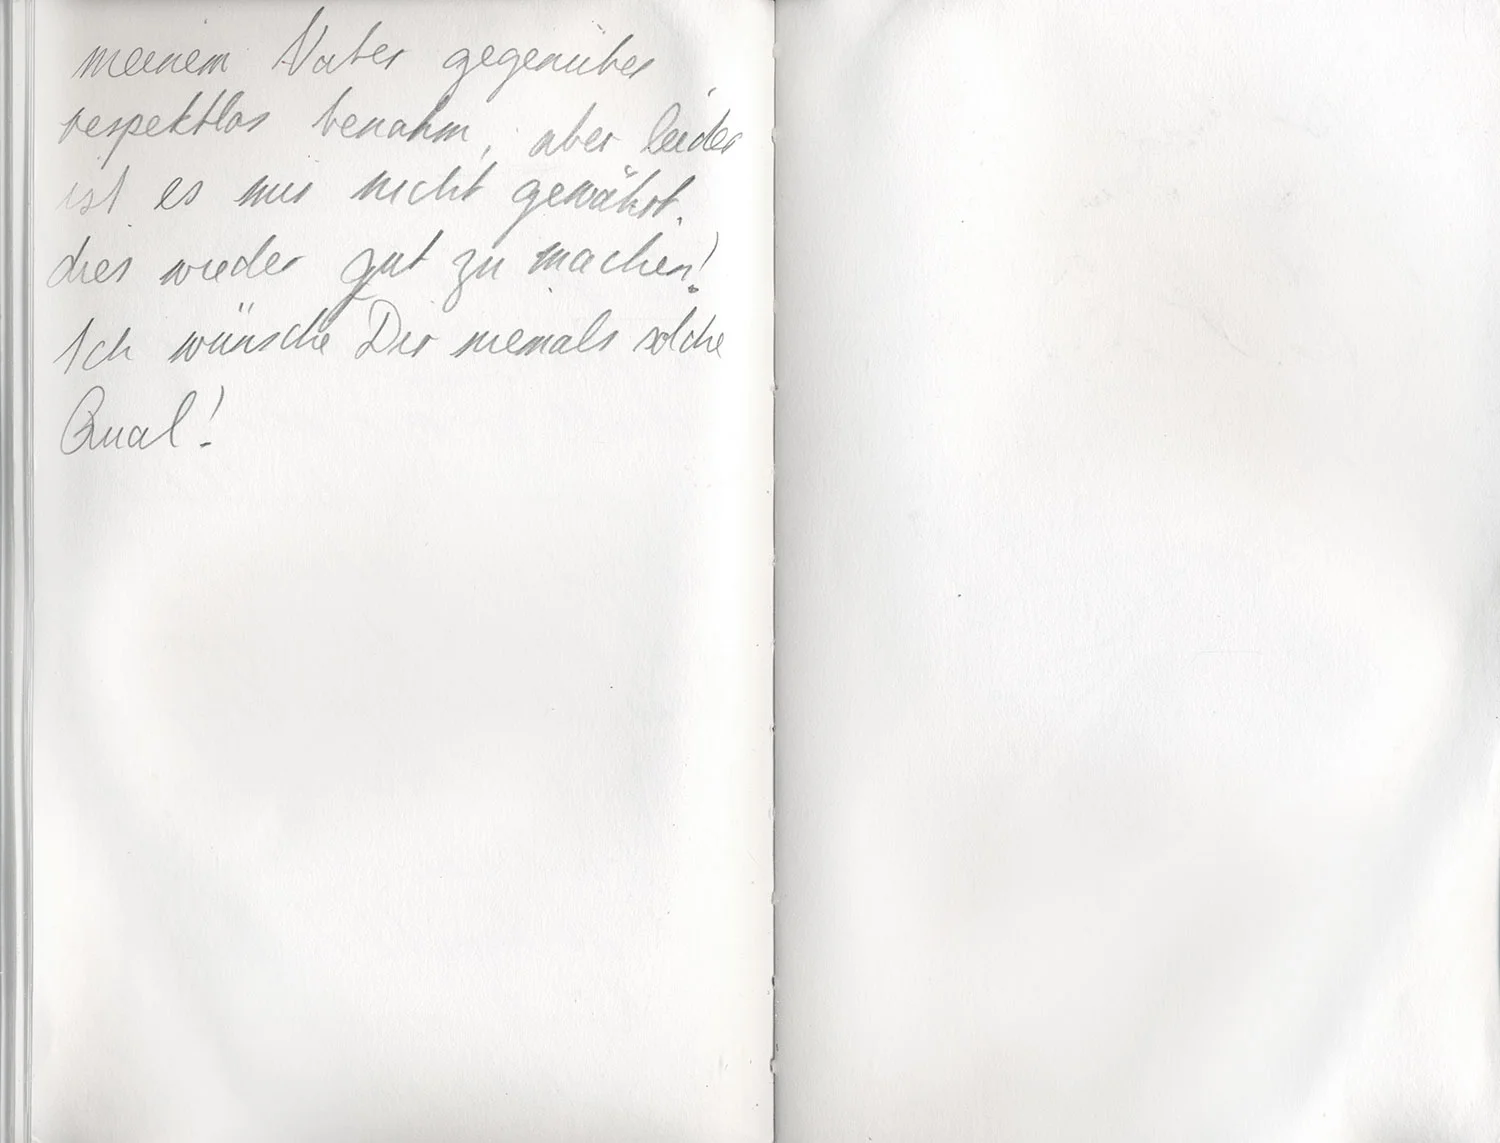 meinem Vater gegenüber
respektlos benahm, aber leider
ist es mir nicht gewährt,
dies wieder gut zu machen!
Ich wünsche Dir niemals solche
Qual!